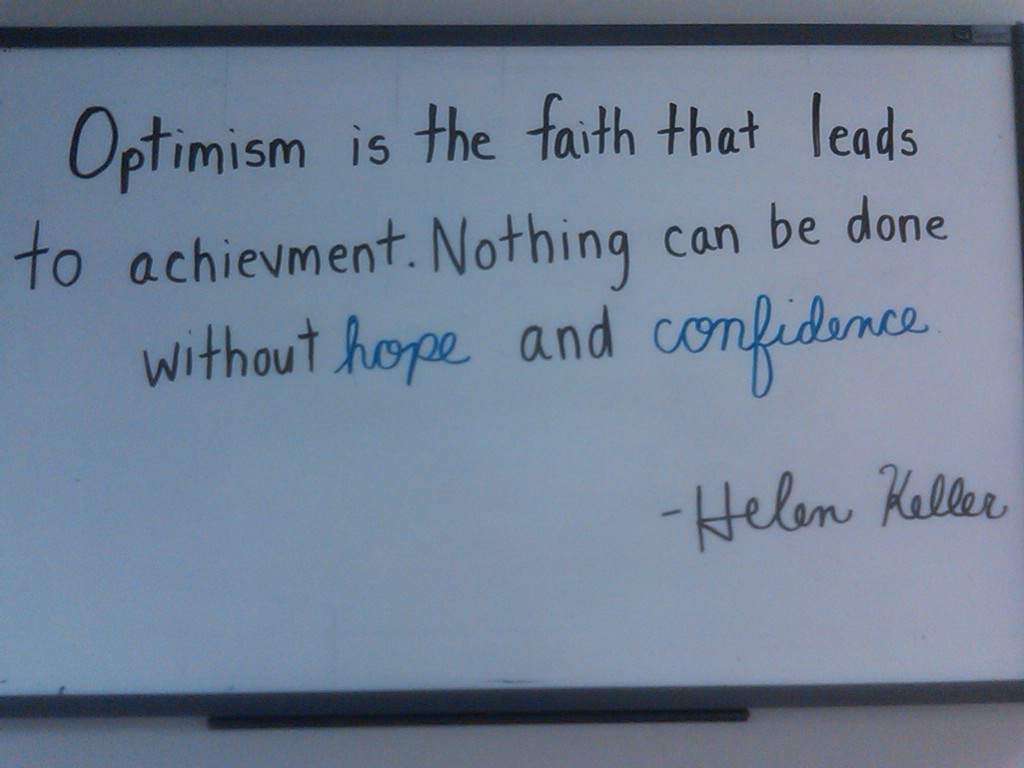 Optimism is the faith that leads
to achievment. Nothing can be done
without hope and confidence
-Helen Keller